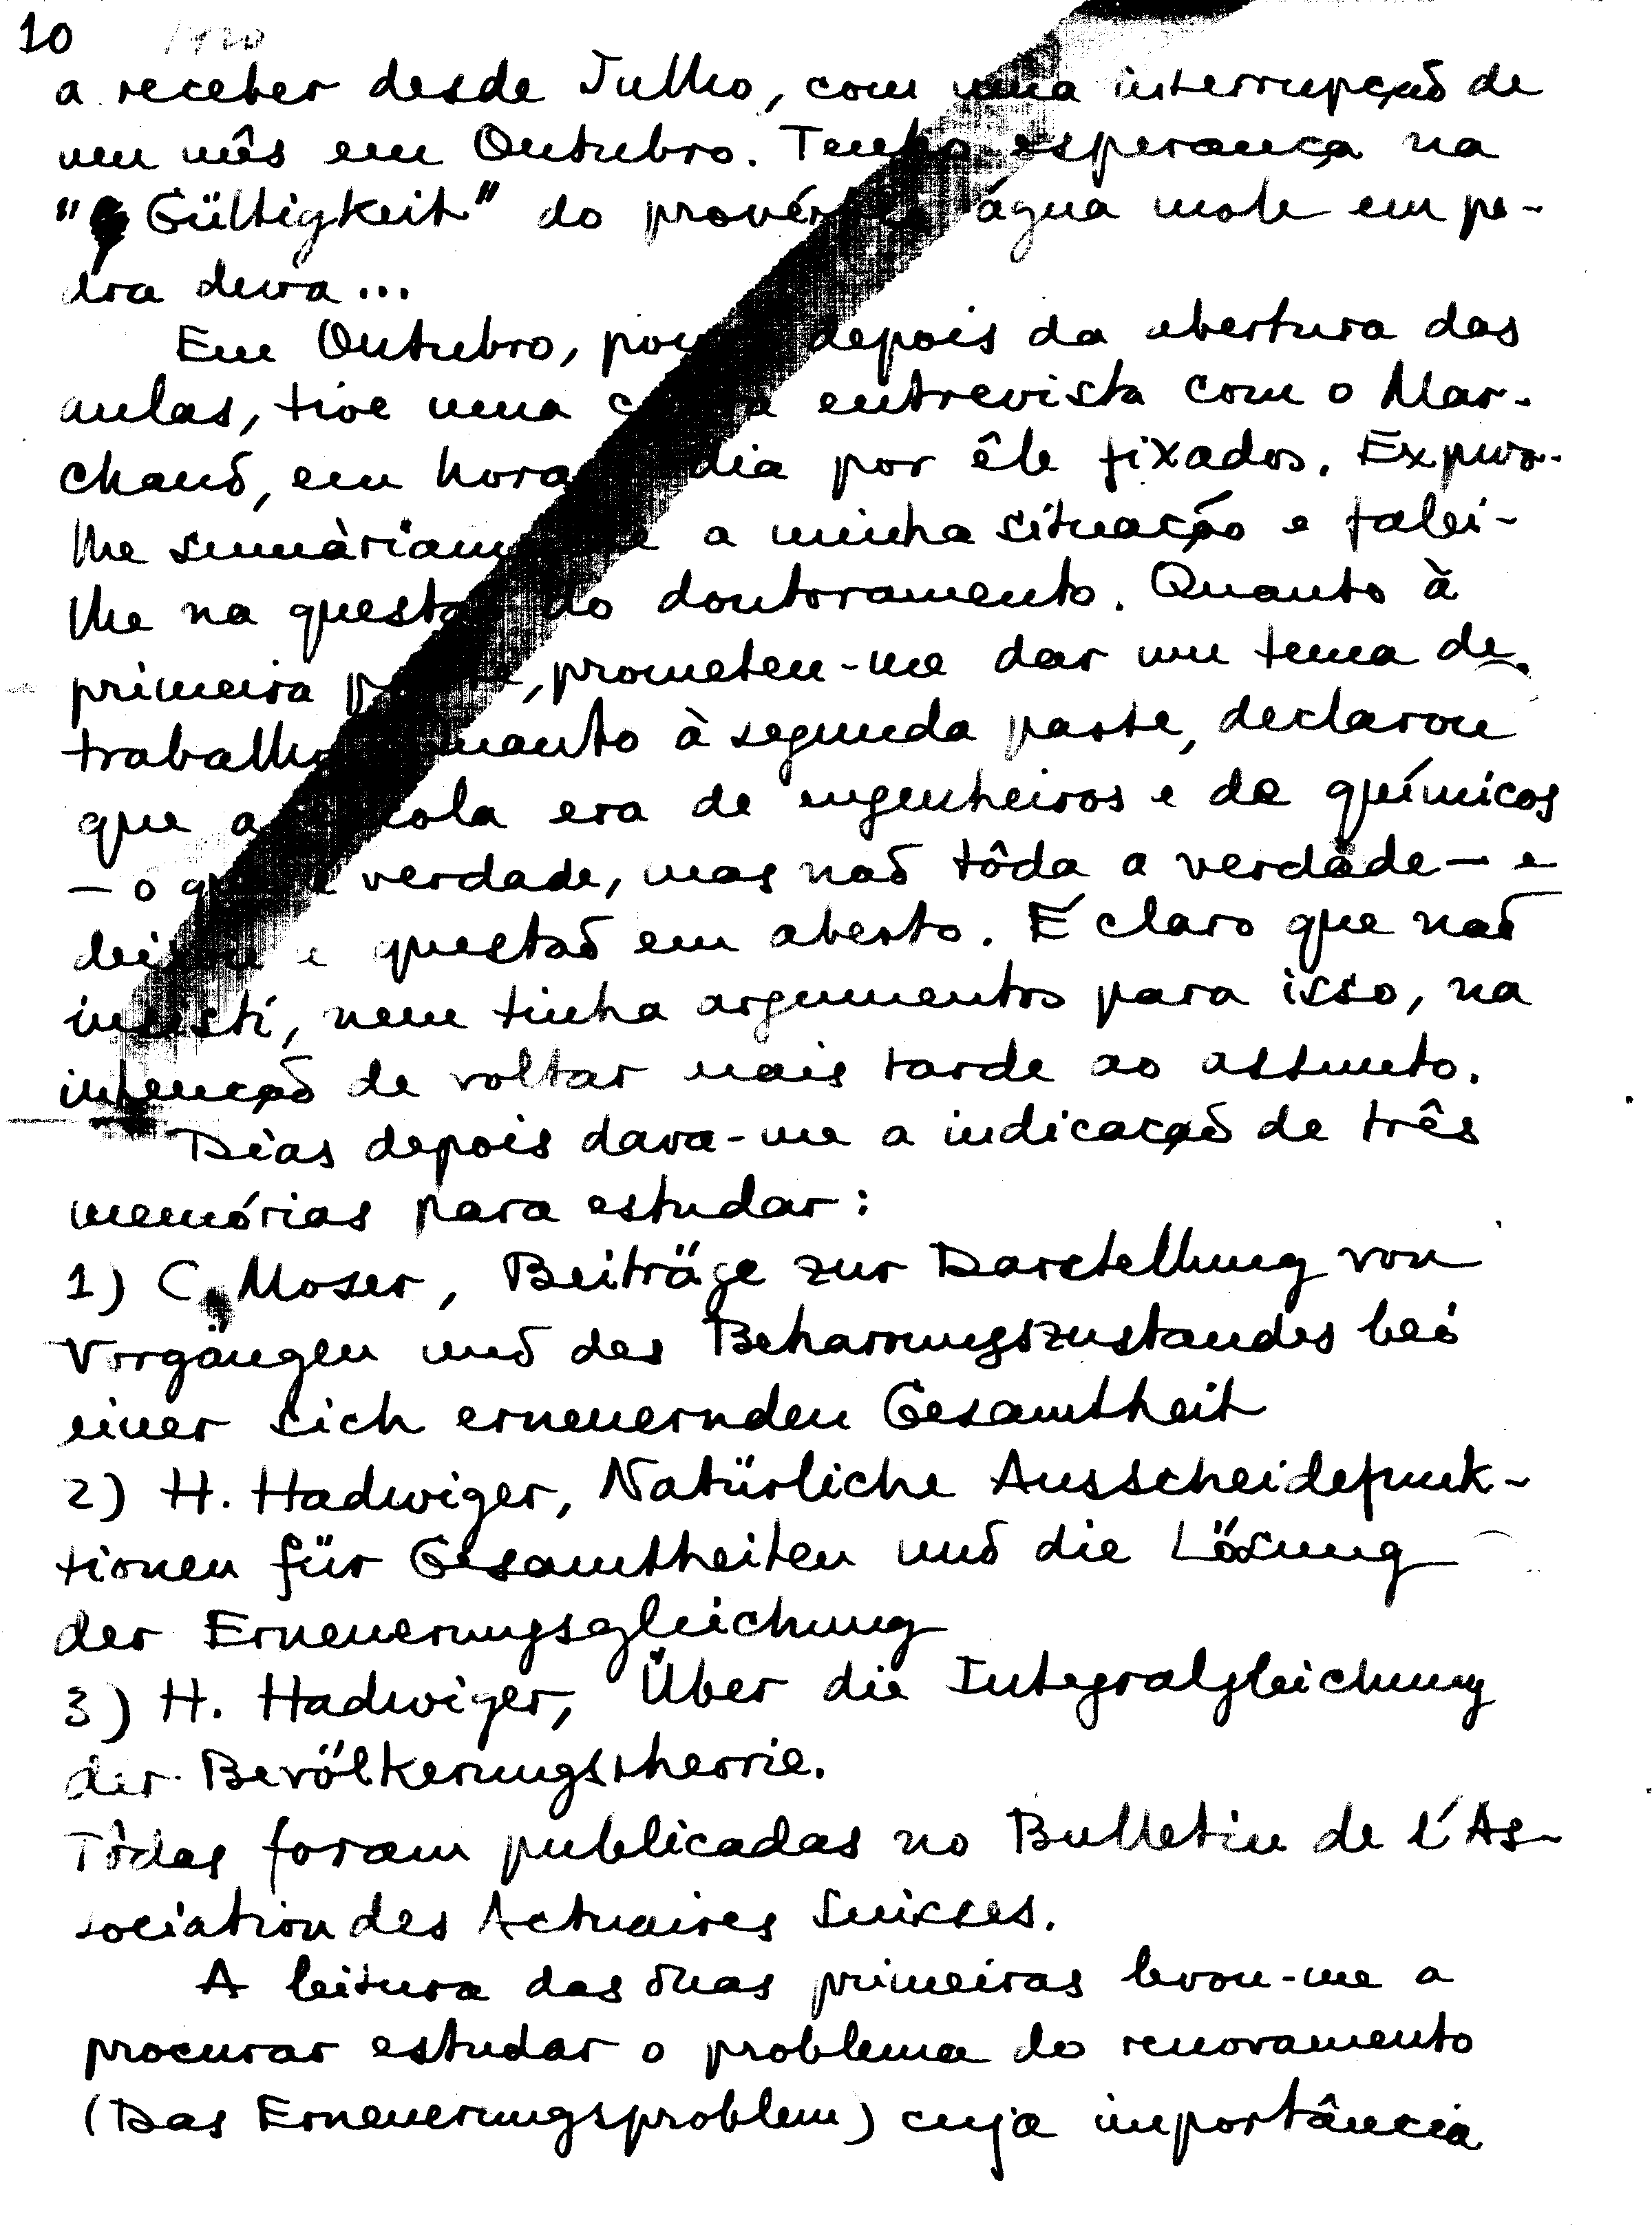 10
a receber desde Julho, com uma interrupção de
um mês em Outubro. Tenho esperança na
"Gültigkeit" do provérbio água mole em pe-
dra dura...
Em Outubro, pouco depois da abertura das
aulas, tive uma entrevista com o Mar-
chand, em hora dia por êle fixados. Expuz-
lhe sumàriamente a minha situação e falei-
lhe na questão do doutoramento. Quanto à
primeira parte, prometeu-me dar um tema de
trabalho quanto à segunda parte, declarou
que a escola era de engenheiros e de químicos
— o que é verdade, mas não tôda a verdade — e
deixou a questão em aberto. É claro que não
insistí, nem tinha argumentos para isso, na
intenção de voltar mais tarde ao assunto.
Dias depois dava-me a indicação de três
memórias para estudar:
1) C. Moser, Beiträge zur Darstellung von
Vorgängen und des Beharrungszustandes bei
einer sich erneuernden Gesamtheit
2) H. Hadwiger, Natürliche Ausscheidefunk-
tionen für Gesamtheiten und die Lösung
der Erneuerungsgleichung
3) H. Hadwiger, Über die Integralgleichung
der Bevölkerungstheorie.
Tôdas foram publicadas no Bulletin de l'As-
sociation des Actuaires Suisses.
A leitura das duas primeiras levou-me a
procurar estudar o problema do renovamento
(Das Erneuerungsproblem) cuja importância